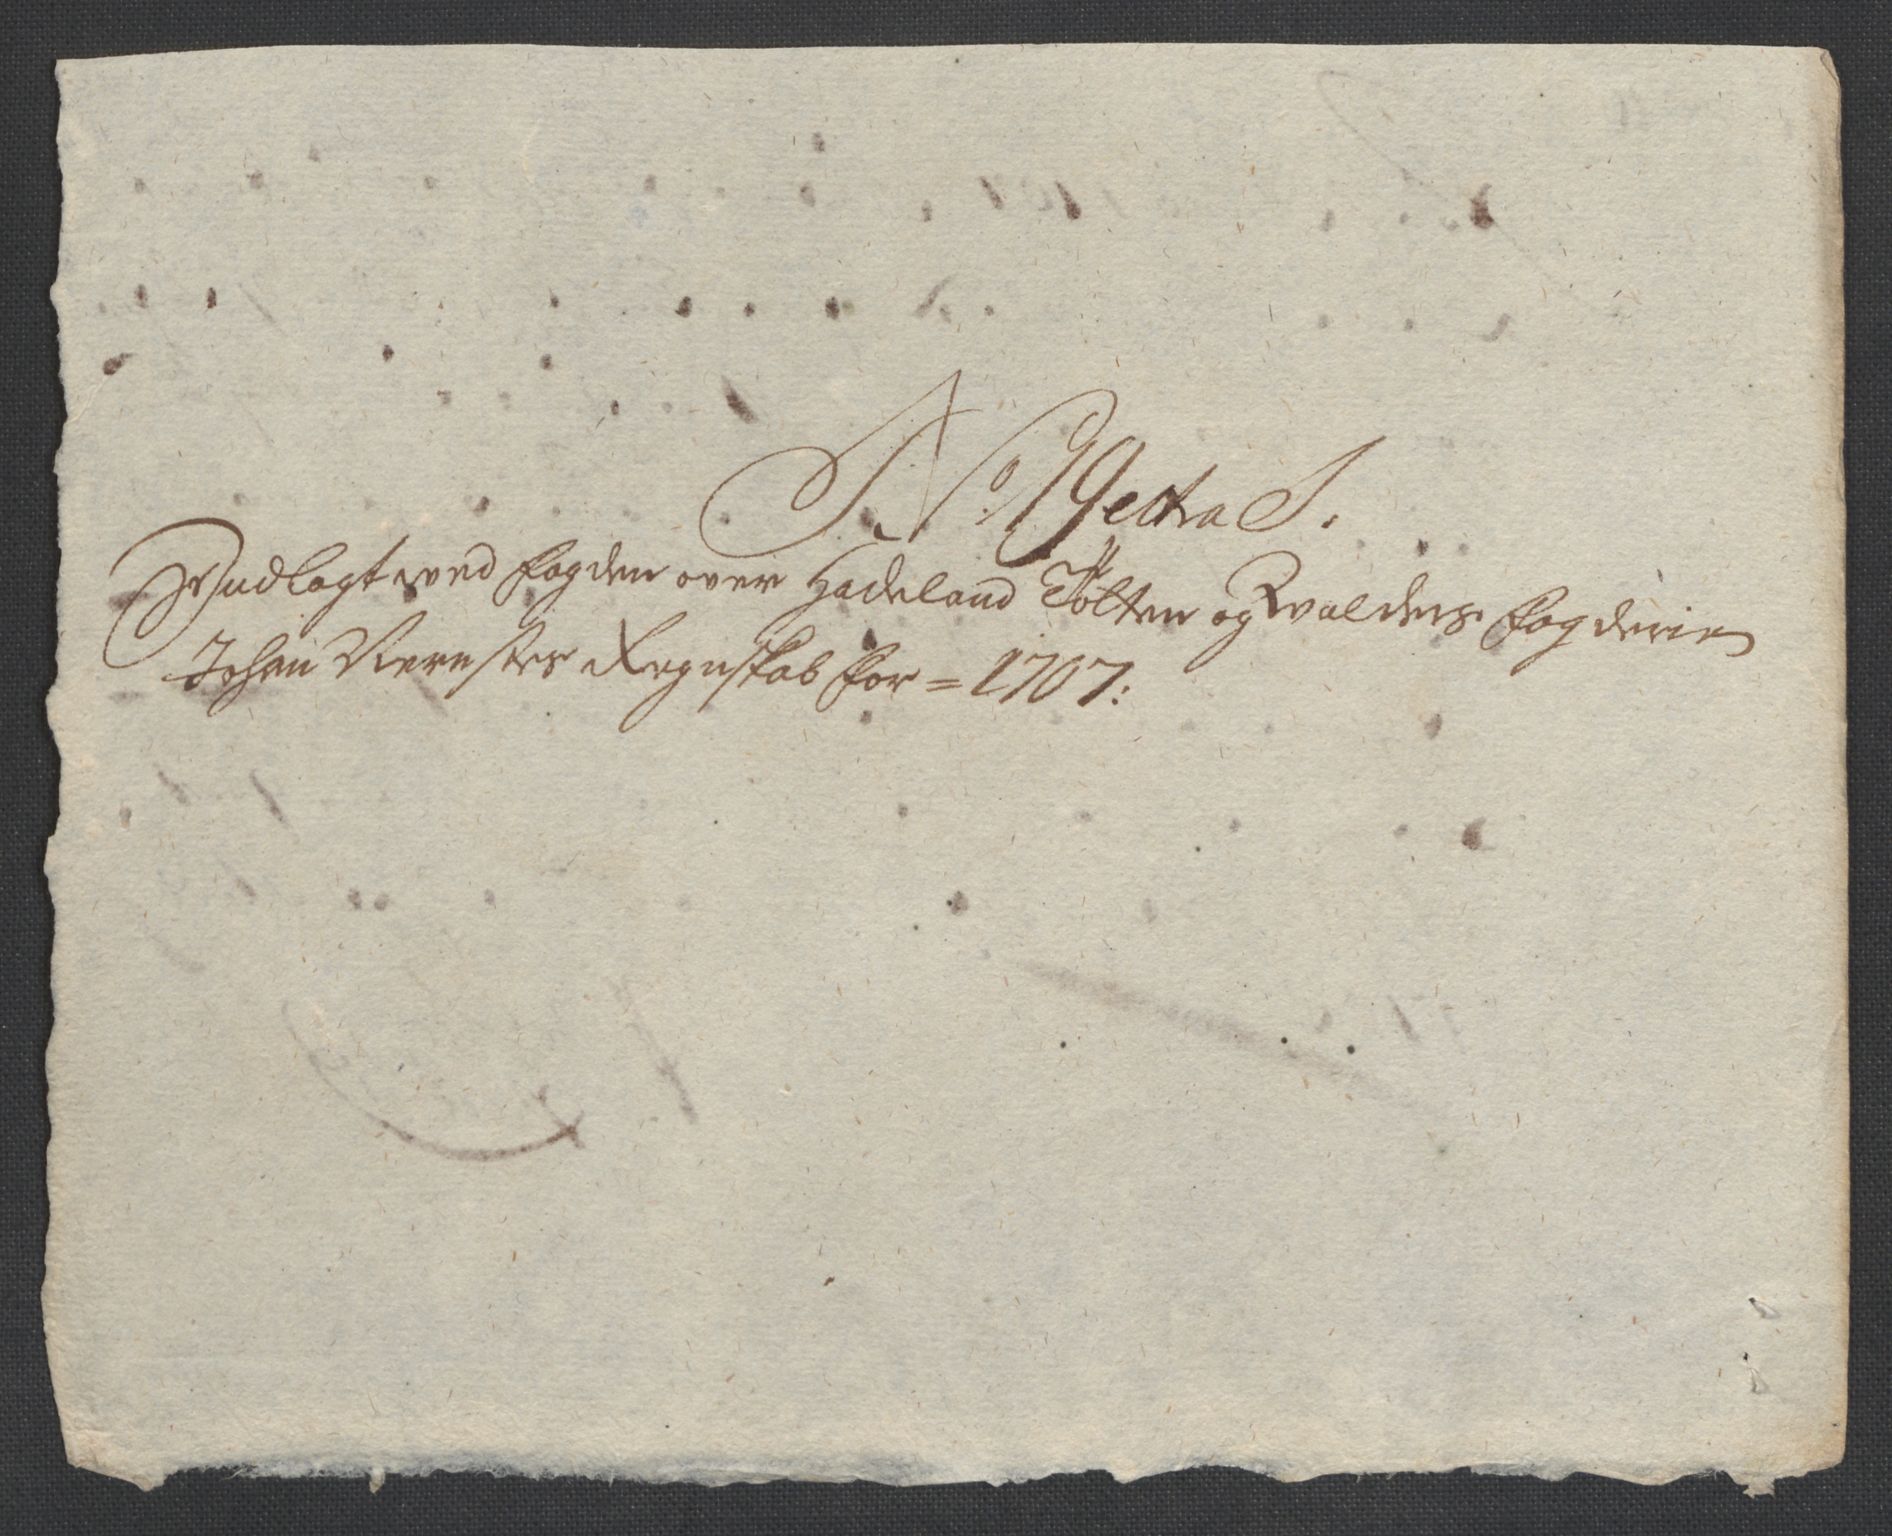 No. Petra S.
Indlagt ved fogden over Hadeland Tolten og Walders fogderie
Johan Nerestes Regnskab for = 1707: